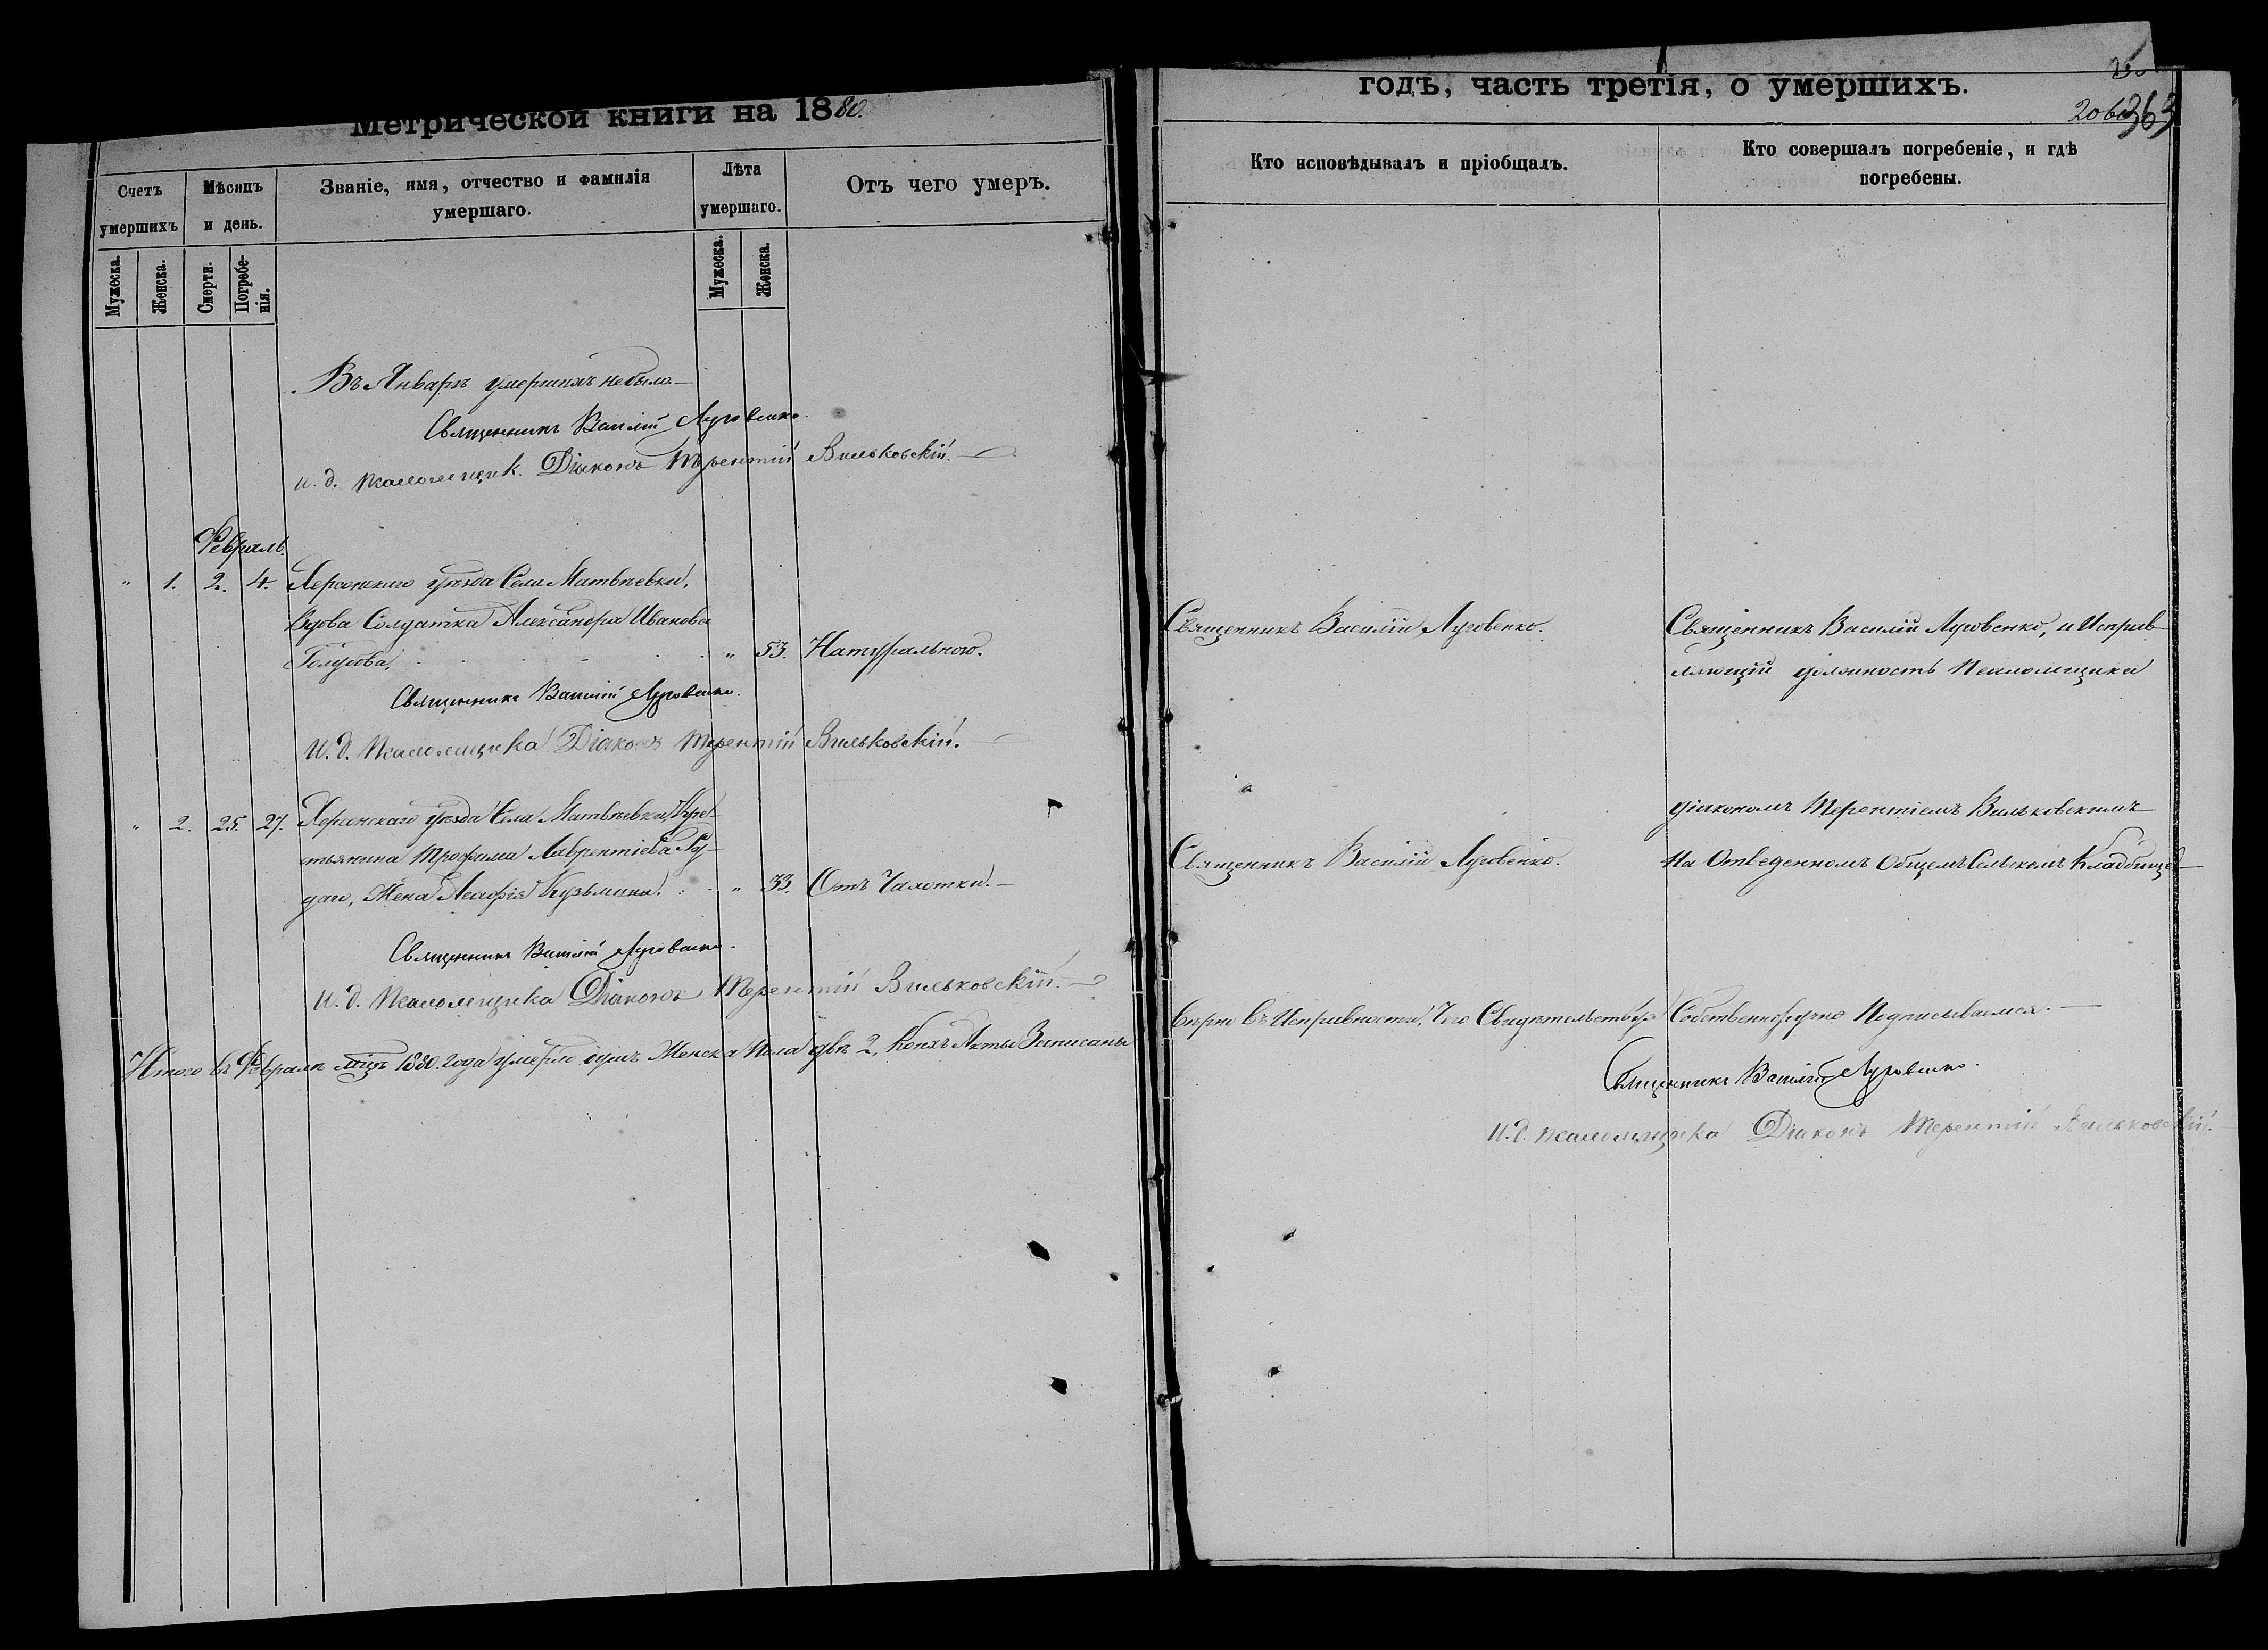 Метрической книги на 1880.
Счетъ умершихъ
Мѣсяцъ и день.
Званіе, имя, отчество и фамилія умершаго.
Лѣта умершаго.
Отъ чего умеръ.
Мужеска.
Женска.
Смерти.
Погребе-
нія.
Мужеска.
Женска.
Въ Январѣ умершихъ небыло
Священникъ Василій Луговенко.
И. д. псаломщик. Діаконъ Терентій Вильковскій.
Февраль.
" 1. 2. 4. Херсонскаго уѣзда Села Матвѣевки,
Вдова Солдатка Александра Иванова
" 53. Натуральною.
Священникъ Василій Луговенко.
И. д. Псаломщика Діаконъ Терентій Вильковскій.
" 2. 25. 27. Херсонскаго уѣзда Села Матвѣевки, Кре-
стьянина Трофима Лаврентіева Ру-
даго, Жена Кузьмина. " 33. Отъ Чахотки.
Священникъ Василій Луговенко.
И. д. Псаломщика Діаконъ Терентій Вильковскій.
Итого въ Февралѣ мцѣ 1880. года умерло Женска Пола двѣ 2, Коихъ Акты Записаны
годъ, часть третія, о умершихъ.
206
363
Кто исповѣдывалъ и пріобщалъ.
Кто совершалъ погребеніе, и гдѣ
погребены.
Священникъ Василій Луговенко.
Священникъ Василій Луговенко, и Исправ-
ляющій должность Псаломщика
діакономъ Терентіемъ Вильковскимъ
Священникъ Василій Луговенко.
На Отведенномъ Общемъ Сельскомъ Кладбищѣ
вѣрно въ Исправности, Чего Свидѣтельствуя Собственноручно Подписываемся.
Священникъ Василій Луговенко.
И. д. псаломщика Діаконъ Терентій Вильковскій.